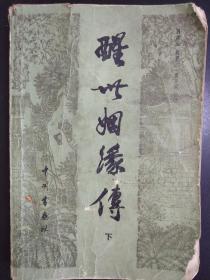 醒世姻缘傳
下
中州書画社